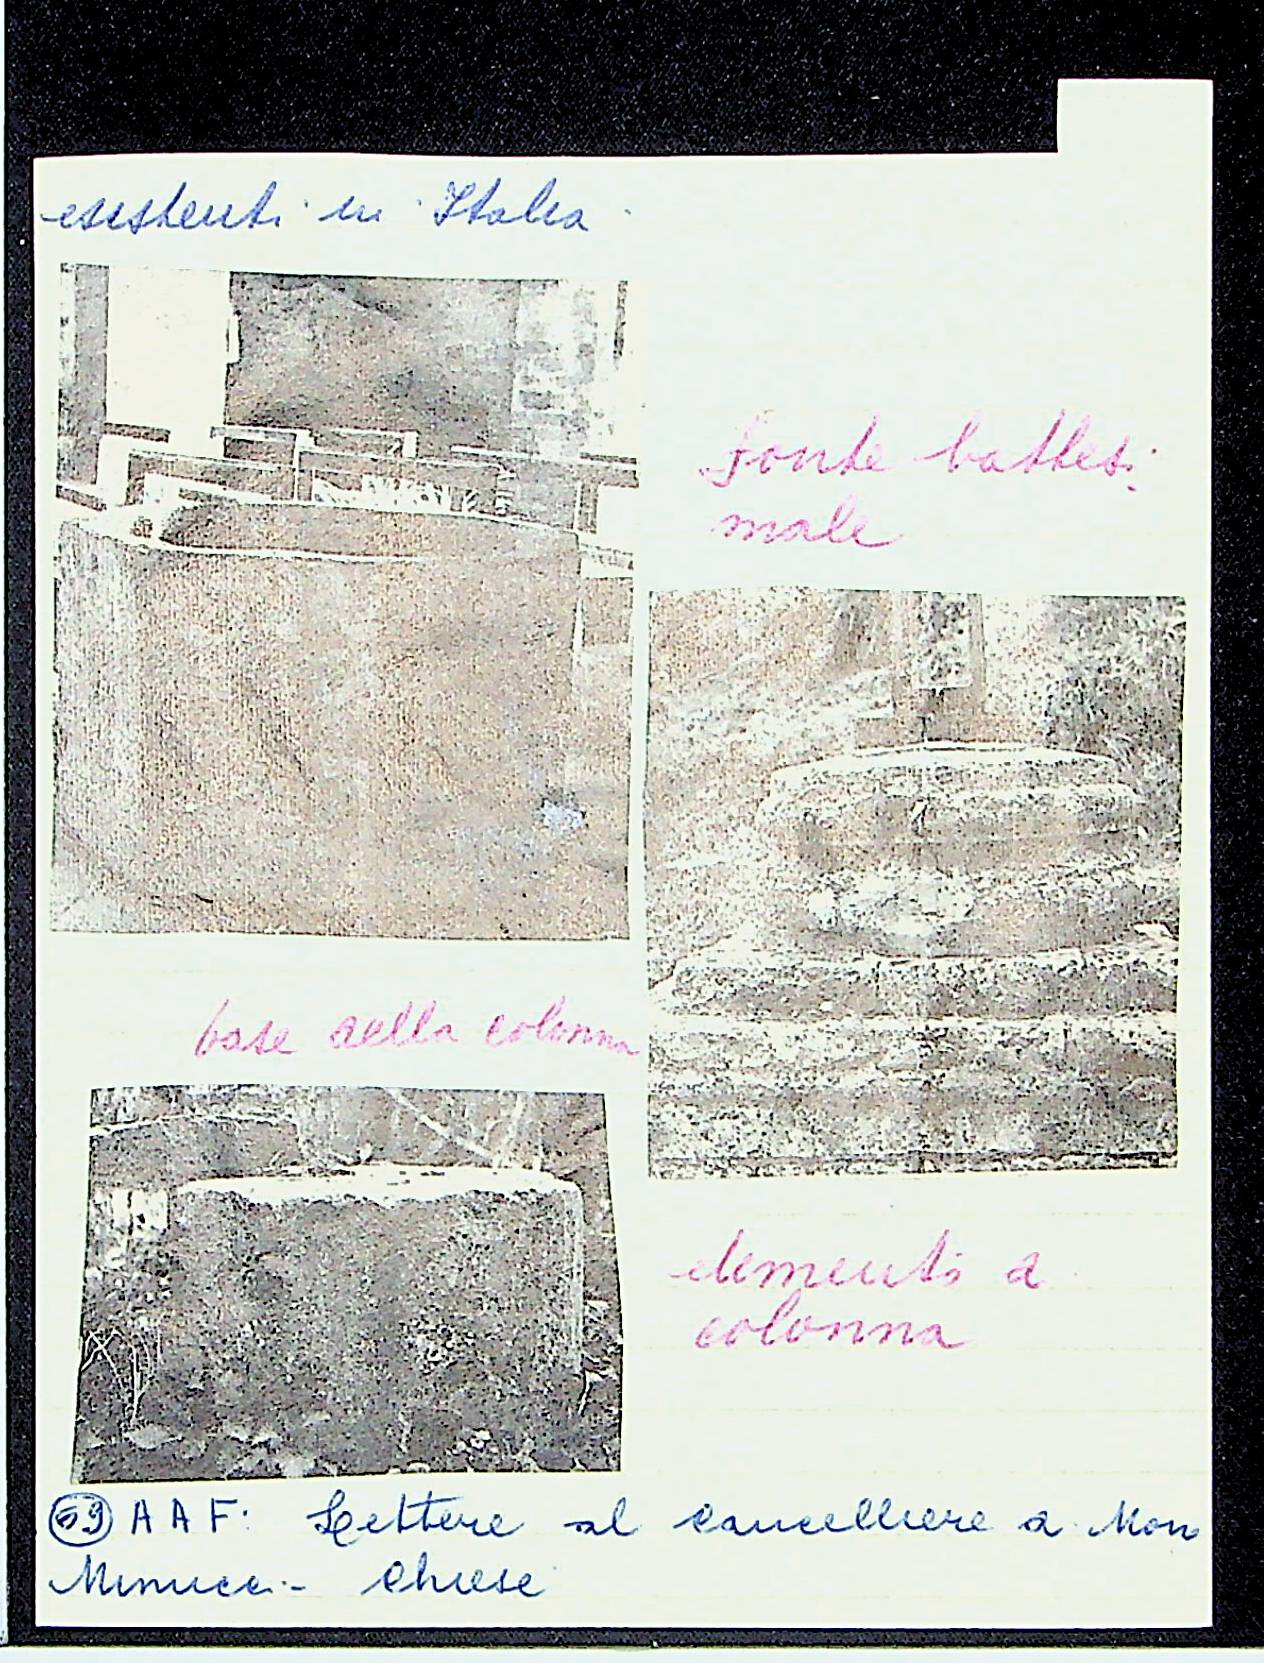 esistenti in Italia
fonte battesi
male
base della colonna
elementi a
colonna
59 A A F: Lettere al cancelliere a Mon
Minucci - Chiese